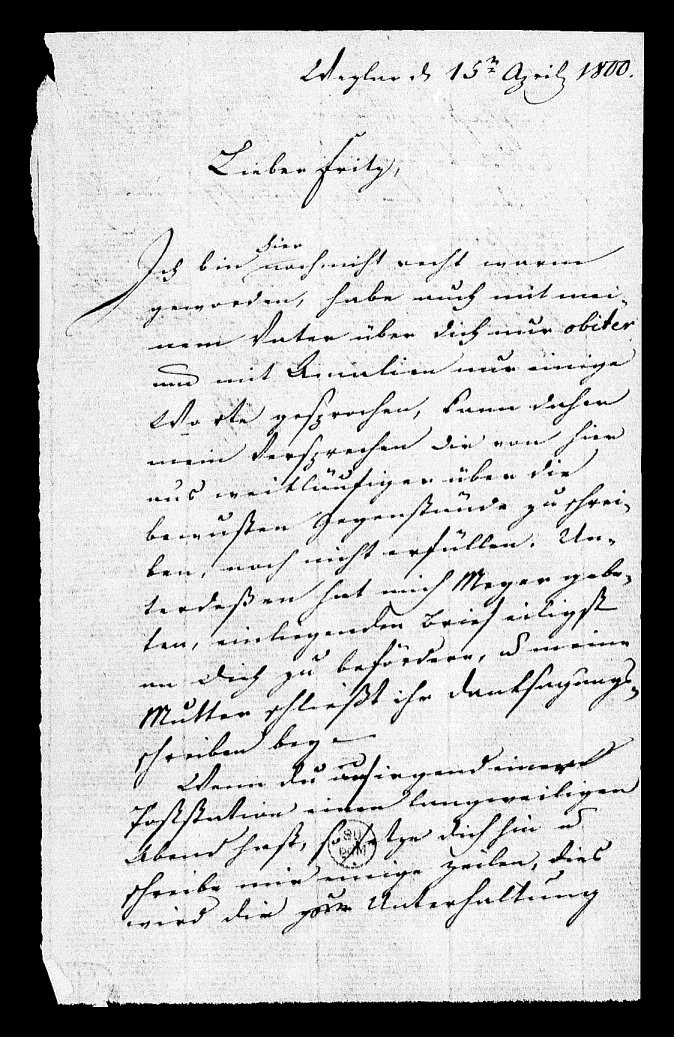 Wezlar d 15n April 1800.
Lieber Fritz,
hier
Ich bin noch nicht recht warm
geworden, habe auch mit mei-
nem Vater über dich nur obiter
und mit Amalien nur einige
Worte gesprochen, kann daher
mein Versprechen dir von hier
aus weitläufiger über die
bewußten Gegenstände zu schrei-
ben, noch nicht erfüllen. Un-
terdeßen hat mich Meyer gebe-
ten, einliegenden Brief eiligst
an dich zu befördern, u meine
Mutter schließt ihr Danksagungs-
schreiben bey –
Wenn du auf irgend einer
Poststation einen langweiligen
Abend hast, so setze dich hin u
schreibe mir einige Zeilen, dies
wird dir zur Unterhaltung